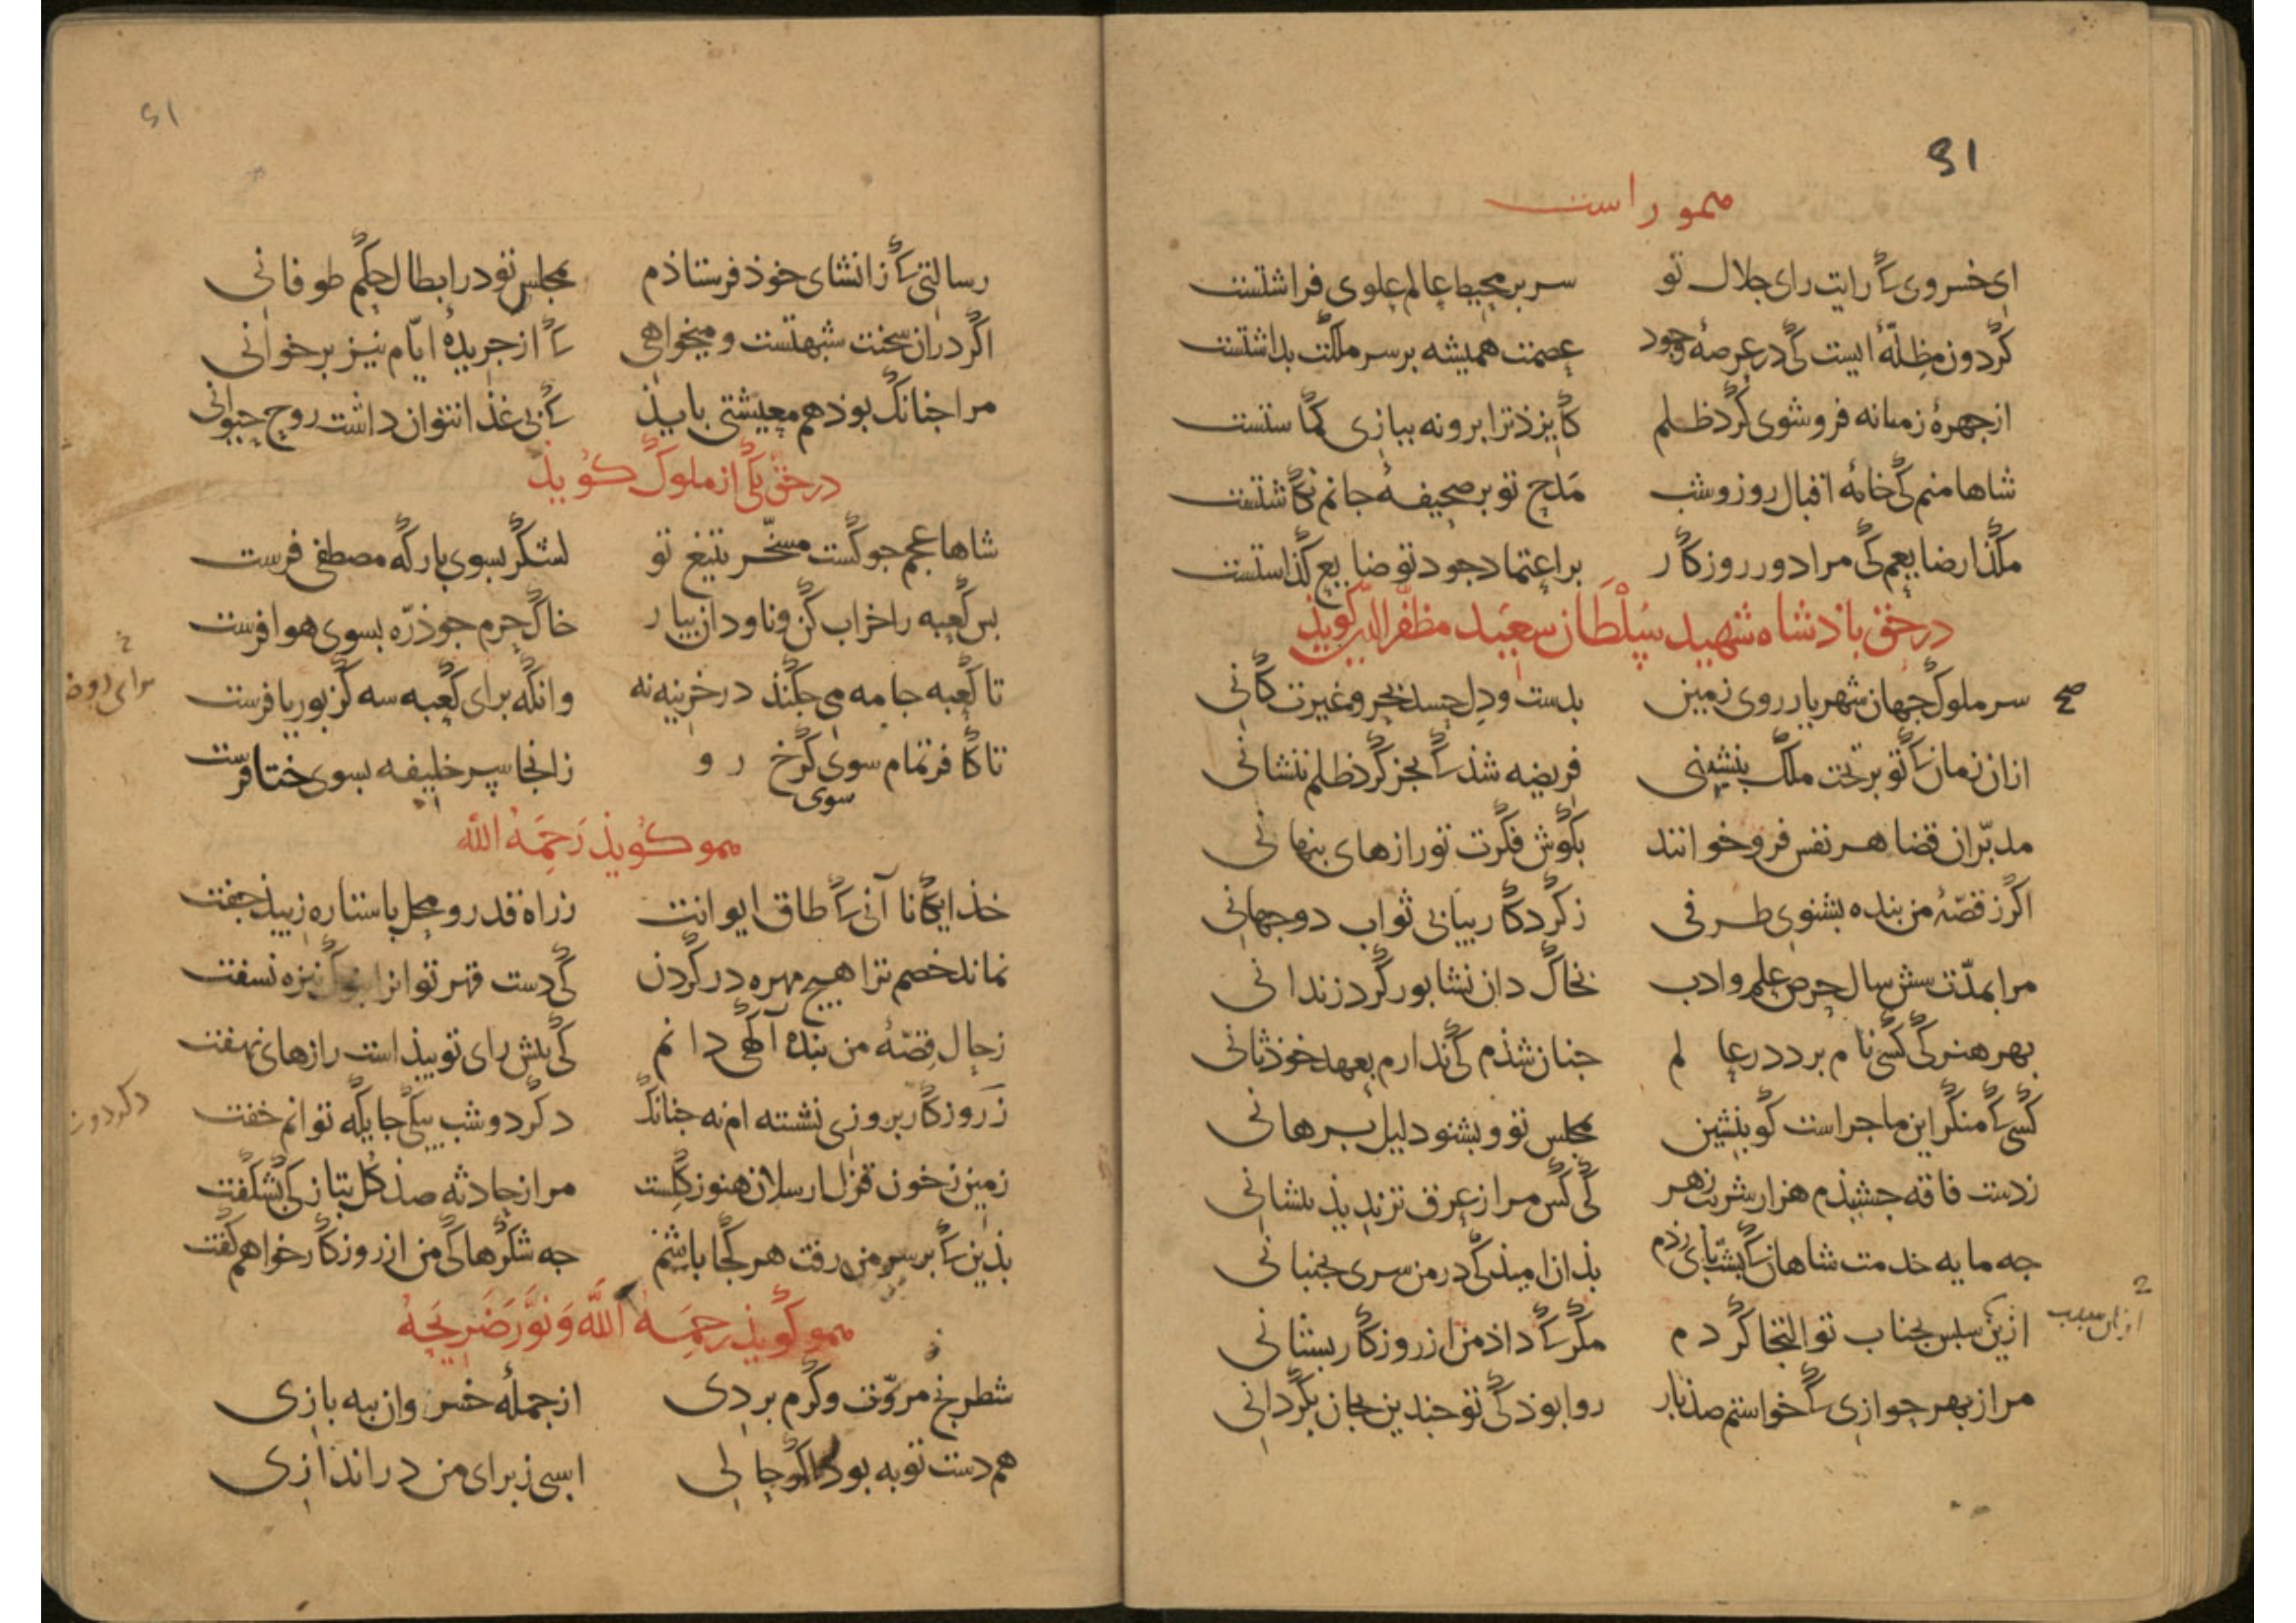 51
همو راست
ای خسروی کݣ رایت رای جلال تو سر بر محیط عالم علوی فراشتست
گردون مظلّهٔ ایست کی در عرصهٔ وجود عصمت همیشه بر سر ملکت بداشتست
از چهرهٔ زمانه فروشوی گرد ظلم کایزد ترا برو نه ببازی کماشتست
شاها منم کی خامهٔ اقبال روز و شب مدح تو بر صحیفهٔ جانم نکاشتست
مکذار ضایعم کی مرا دور روزکار بر اعتماد جود تو ضایع کذاستست
در حق باذشاه شهید سلطان سعید مظفر الدین کویذ
سر ملوک جهان شهریار روی زمین بدست و دل حسد بحر و غیرت کانی
صح
ازان زمان که تو بر تخت ملک بنشینی فریضه شذ که بجز کرد ظلم ننشانی
مدبّران قضا هر نفس فرو خوانند بکوش فکرت تو رازهای بنهانی
اکر ز قصّهٔ من بنده بشنوی طرفی ز کردکار بیابی ثواب دو جهانی
مرا بمدّت شش سال حرص علم و ادب بخاک دان نشابور کرد زندانی
بهر هنر کی کسی نام برد در عالم جنان شذم کی ندارم بعهد خوذ ثانی
کسی که منکر این ماجراست کو بنشین مجلس تو و بشنو دلیل برهانی
ز دست فاقه جشیذم هزار شربت زهر کی کس مرا ز عرق تر ندید بذ بشانی
جه مایه خدمت شاهان که بشت بای زدم بذان امیذ کی در من سری بجنبانی
ازین سبس بجناب تو التجا کردم مکر که داذ من از روزکار بستانی
مرا ز بهر جوازی که خواستم صذ بار روا بوذ کی تو جندین بجان بکردانی
51
رسالتی که ز انشای خوذ فرستاذم مجلس تو در ابطال حکم طوفانی
اکر دران سخنت شبهتست و میخواهی که از جریدهٔ ایّام نیز بر خوانی
مرا جنانک بوذ هم معیشتی بایذ که بی غذا نتوان داشت روح حیوانی
در حق یکی از ملوک کویذ
شاها عجم جو کشت مسخّر بتیغ تو لشکر بسوی بارکه مصطفی فرست
بس کعبه را خراب کن و ناودان بیار خاک حرم جو ذرّه بسوی هوا فرست
تا کعبه جامه می جکند در خزینه نه وانکه برای کعبه سه کز بوریا فرست
برای دو
تا کافر تمام سوی کرخ رو زانجا سپر خلیفه بسوی ختا فرست
سوی
همو کویذ رحمه الله
خذایکانا آنی که طاق ایوانت ز راه قدر و محل با ستاره زیبذ جفت
نماند خصم ترا هیچ مهره در کردن کی دست قهر تو انرا بنوک نیزه نسفت
ز حال قصّهٔ من بنده آکهی دانم کی بیش رای تو بیذاست رازهای نهفت
ز روزکار بروزی نشسته ام نه جنانک دکر دو شب بیکی جایکه توانم خفت
زمین ز خون قزل ارسلان هنوز کلست مرا ز حادثه صذ کل بتازکی بشکفت
بذین که بر سر من رفت هر کجا باشم جه شکرها کی من از روزکار خواهم کفت
همو کویذ رحمه الله و نور ضریحه
شطرنج مروّت و کرم بردی از جملهٔ خسروان ببه بازی
هم دست تو به بوذ حالی اسبی ز برای من دراندازی